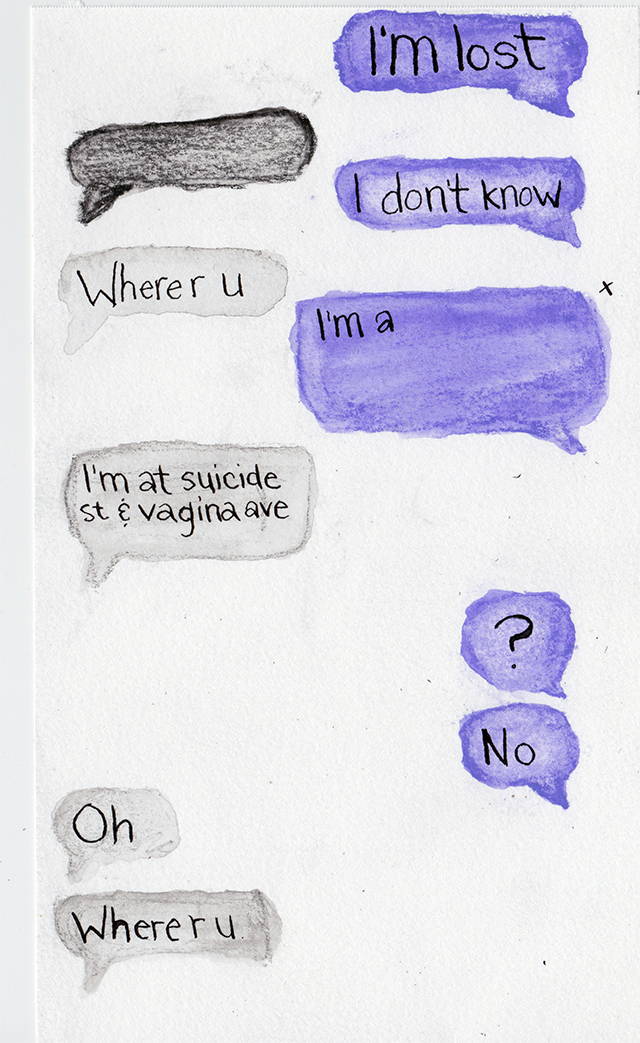 I'm lost
I don't know
Where r u
x
I'm a
I'm at suicide
st & vagina ave
?
No
Oh
Where r u.